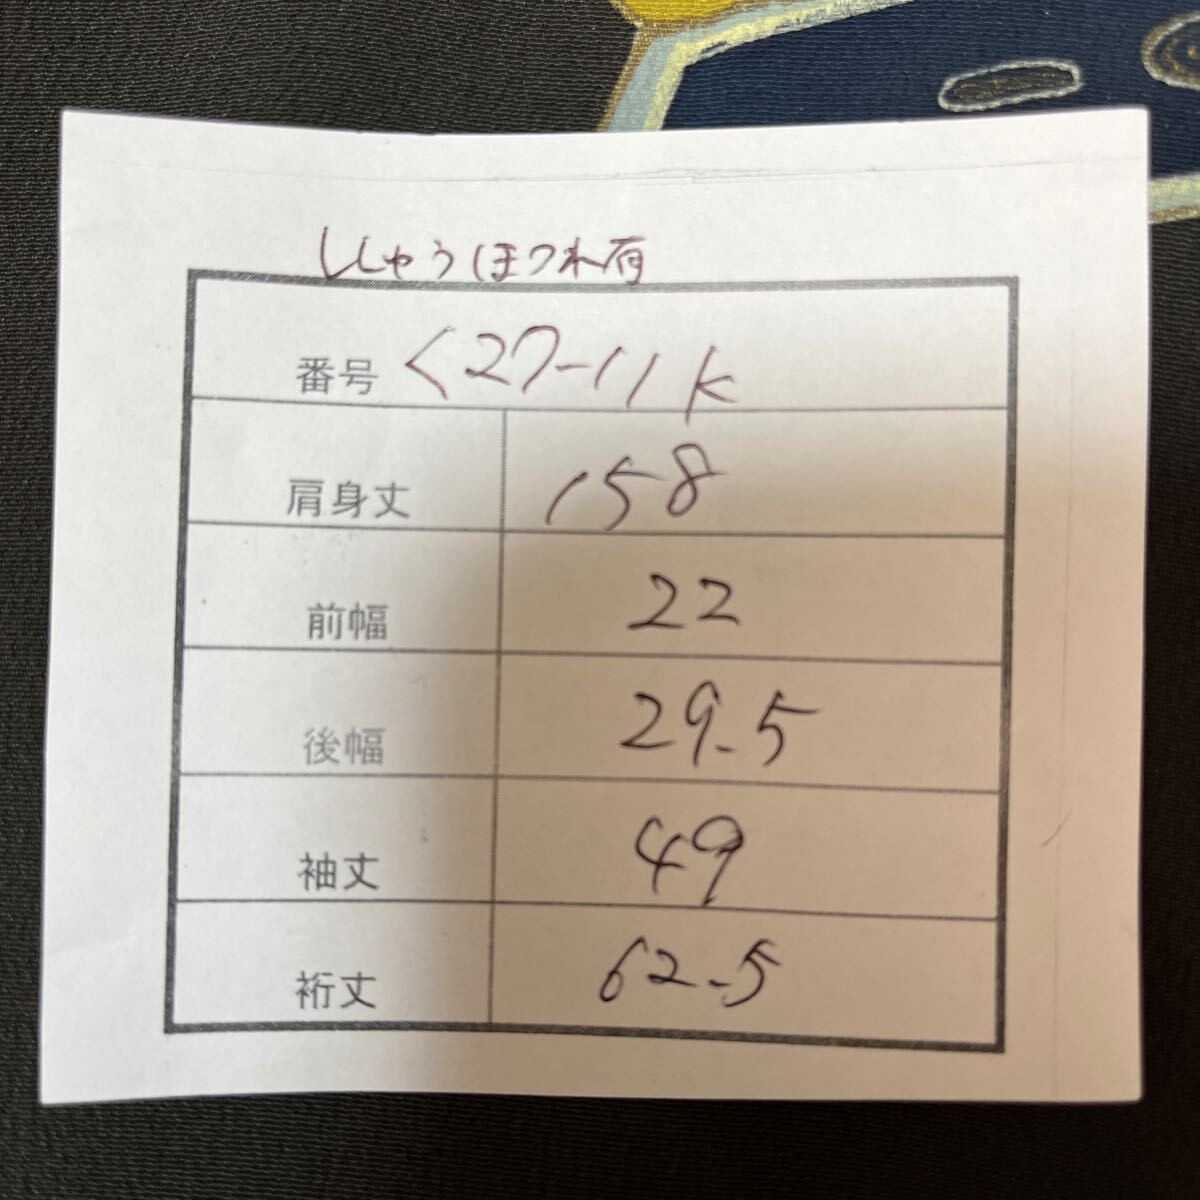 ししゅうほつれ有
番号 く27-11 K
肩身丈 158
前幅 22
後幅 29.5
袖丈 49
裄丈 62.5